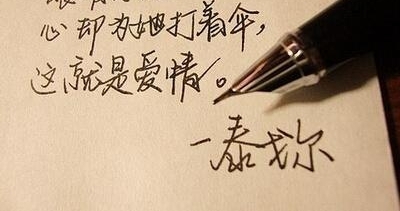 心却为她打着伞,
这就是爱情。
一泰戈尔